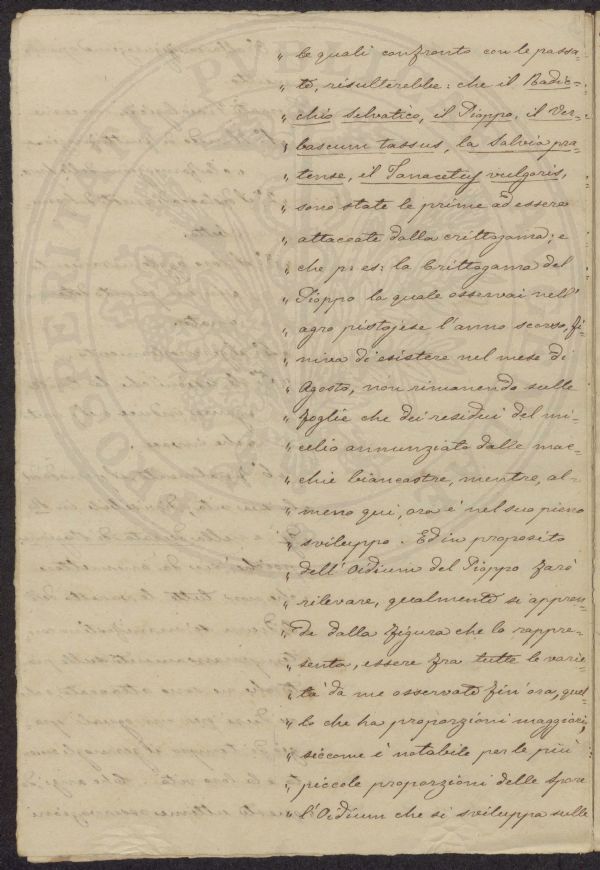 " le quali confronto con le passa-
" te, risulterebbe: che il Radic-
" chio Selvatico, il Pioppo, il Ver-
" bascum tassus, la Salvia pra-
" tense, il Tanacetum vulgaris,
" sono state le prime ad essere
" attaccate dalla crittogama; e
" che p: es: la Crittogama del
" Pioppo la quale osservai nell'
" agro pistojese l'anno scorso, fi-
" niva di esistere nel mese di
" Agosto, non rimanendo sulle
" foglie che dei residui del mi-
" celio annunziato dalle mac-
" chie biancastre, mentre, al-
" meno qui, ora è nel suo pieno
" sviluppo. Ed in proposito
" dell'Oidium del Pioppo farò
" rilevare, qualmente si appren-
" de dalla figura che lo rappre-
" senta, essere fra tutte le varie-
" tà da me osservate fin'ora, quel-
" lo che ha proporzioni maggiori,
" siccome è notabile per le più
" piccole proporzioni delle spore
" l'Oidium che si sviluppa sulle